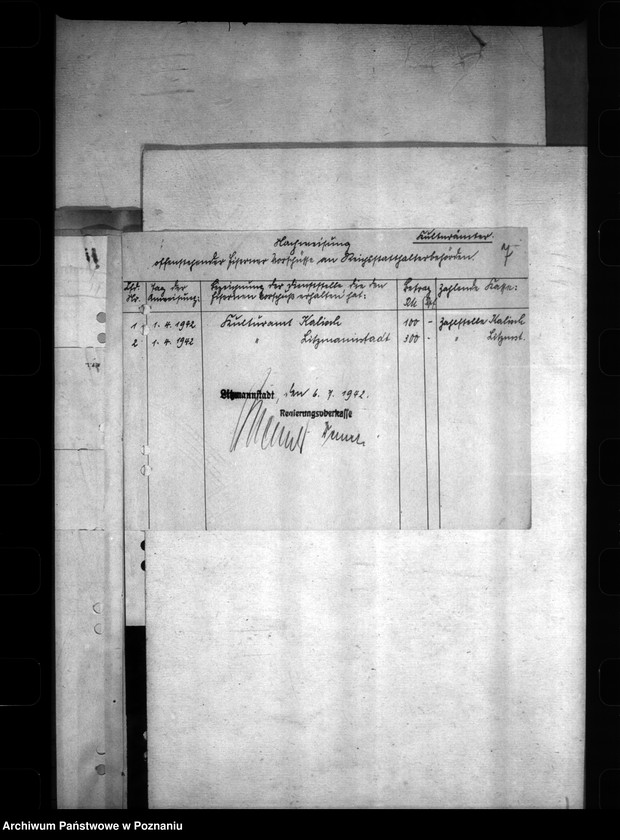 Kulturämter.
7
Nachweisung
offenstehender Eiserner Vorschüsse an Reichsstatthalterbehörden.
Lfd. Nr. Tag der Anweisung: Bezeichnung der Dienststelle die den Eisernen Vorschuß erhalten hat: Betrag RM Rpf zahlende Kasse:
1 1.4.1942 Kulturamt Kalisch 100 - Zahlstelle Kalisch
2 1.4.1942 " Litzmannstadt 300 - " Litzmst.
Litzmannstadt, den 6.7.1942.
Regierungsoberkasse
Archiwum Państwowe w Poznaniu